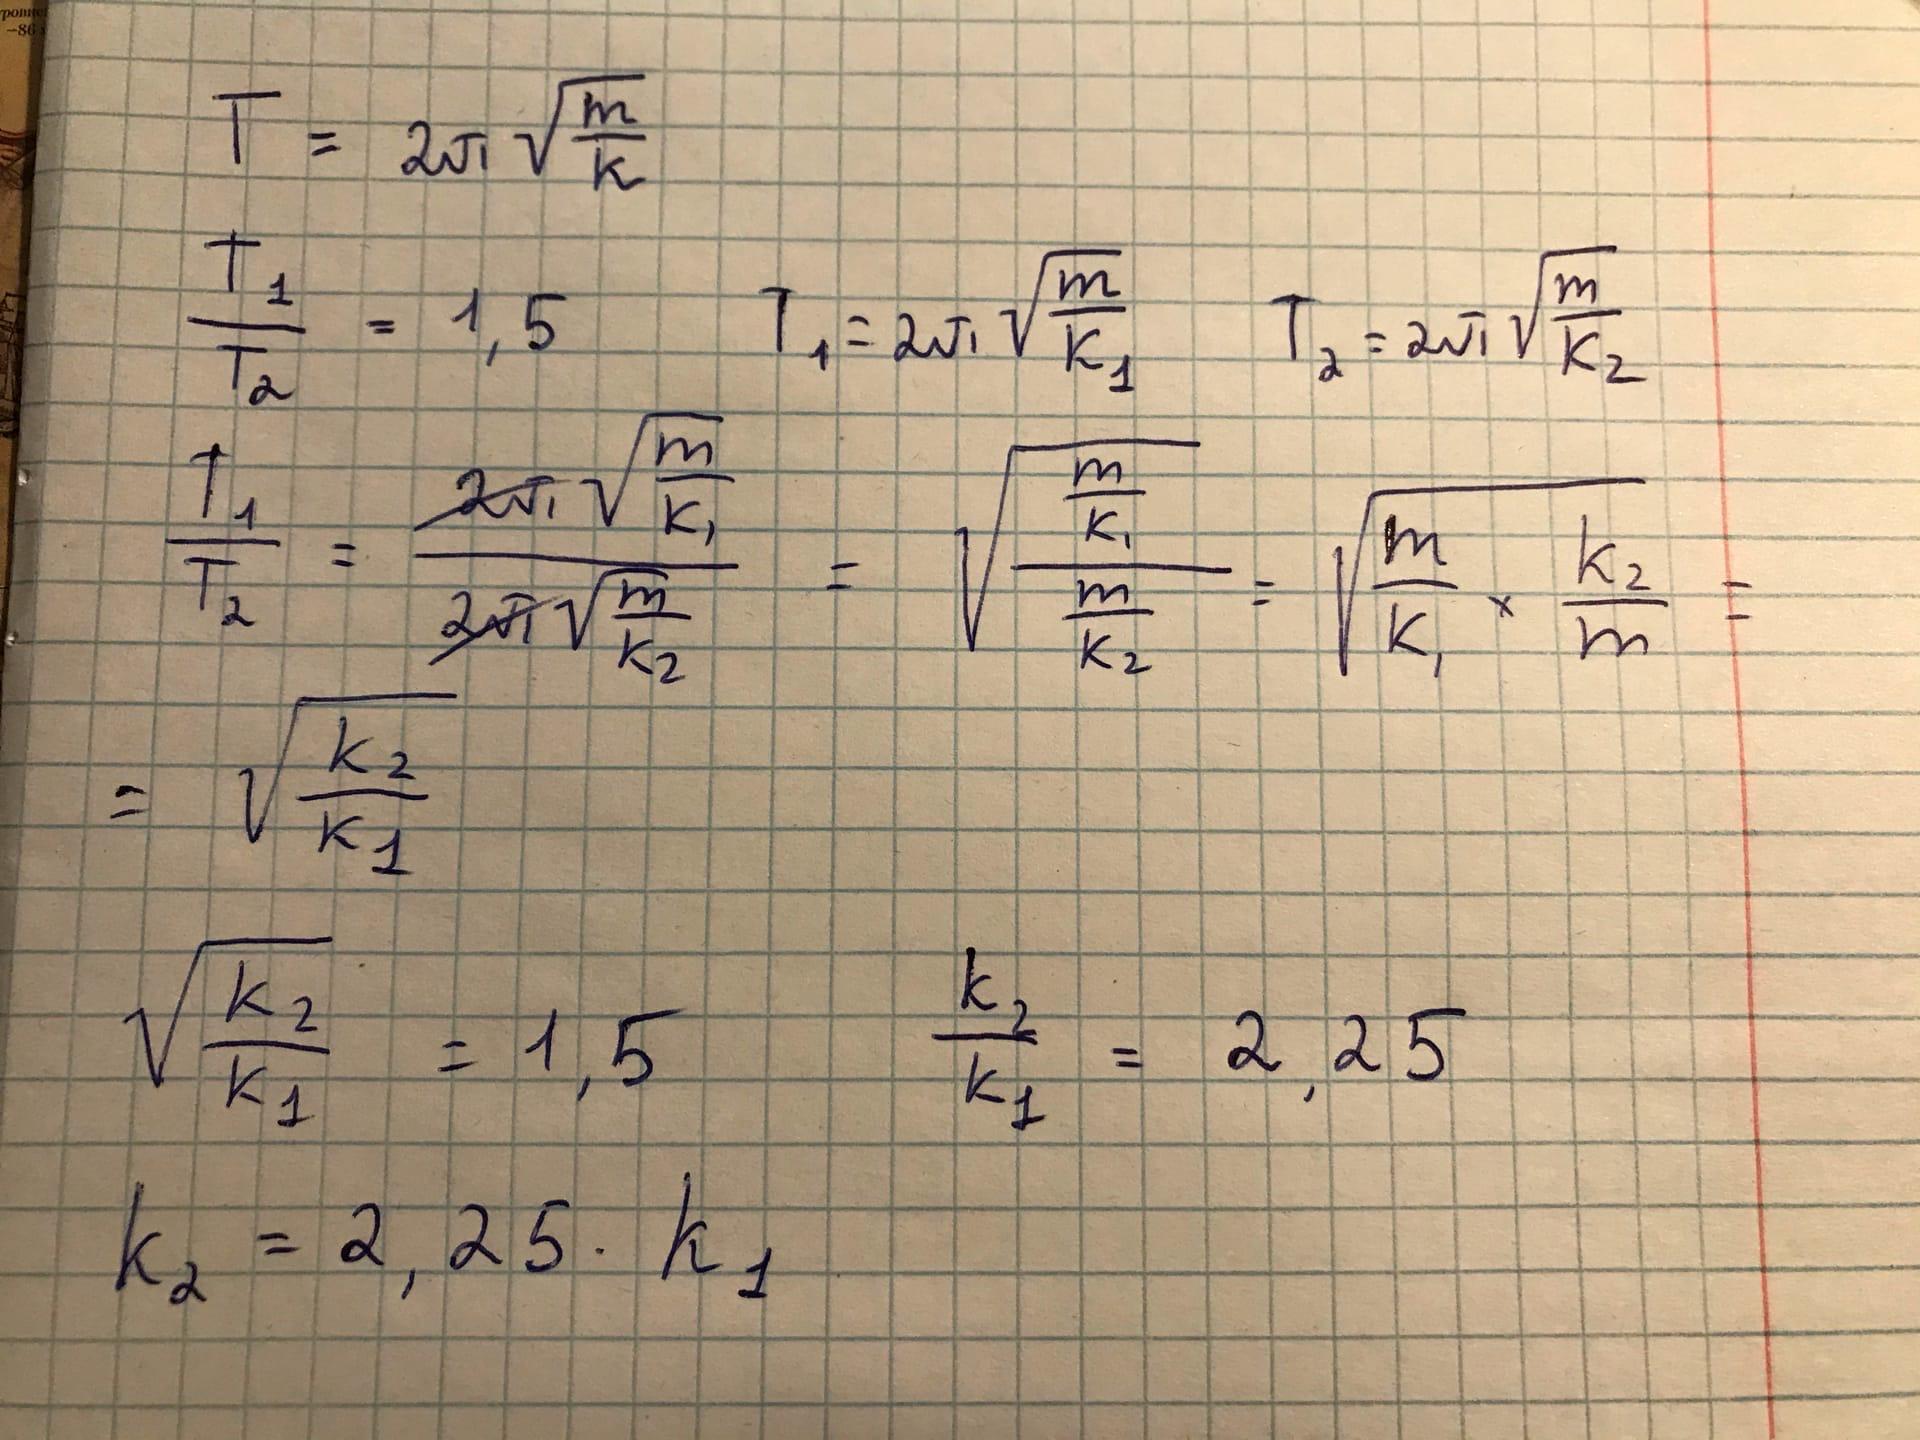 -86
T = 2π √(m/k)
T₁/T₂ = 1,5 T₁ = 2π √(m/k₁) T₂ = 2π √(m/k₂)
T₁/T₂ = 2π √(m/k₁) / 2π √(m/k₂) = √((m/k₁)/(m/k₂)) = √(m/k₁ × k₂/m) =
= √(k₂/k₁)
√(k₂/k₁) = 1,5 k₂/k₁ = 2,25
k₂ = 2,25 · k₁